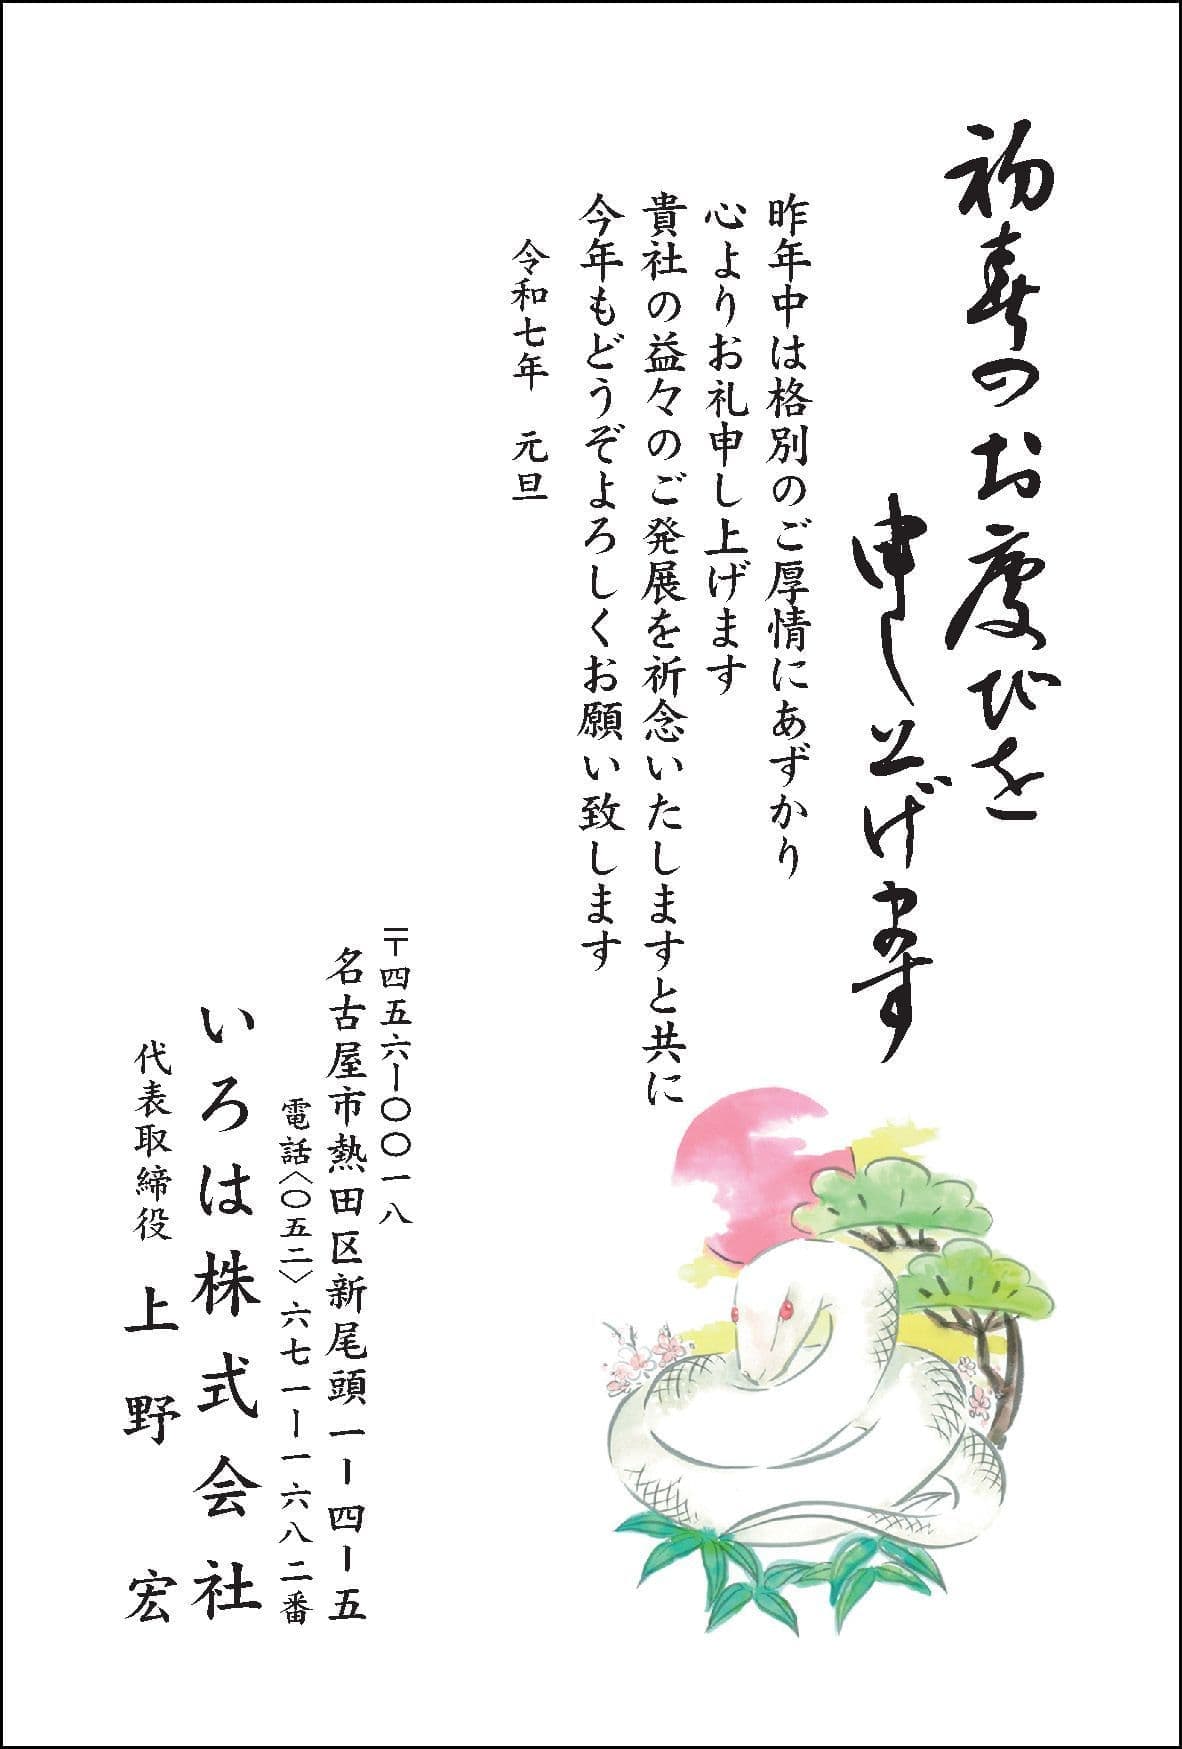 初春のお慶びを
申し上げます
昨年中は格別のご厚情にあずかり
心よりお礼申し上げます
貴社の益々のご発展を祈念いたしますと共に
今年もどうぞよろしくお願い致します
令和七年　元旦
〒四五六ー〇〇一八
名古屋市熱田区新尾頭一ー四ー五
電話〈〇五二〉六七一ー一六八二番
いろは株式会社
代表取締役　上野　宏